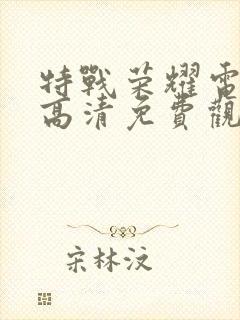 特戰榮耀電
高清免費觀
宋林汶